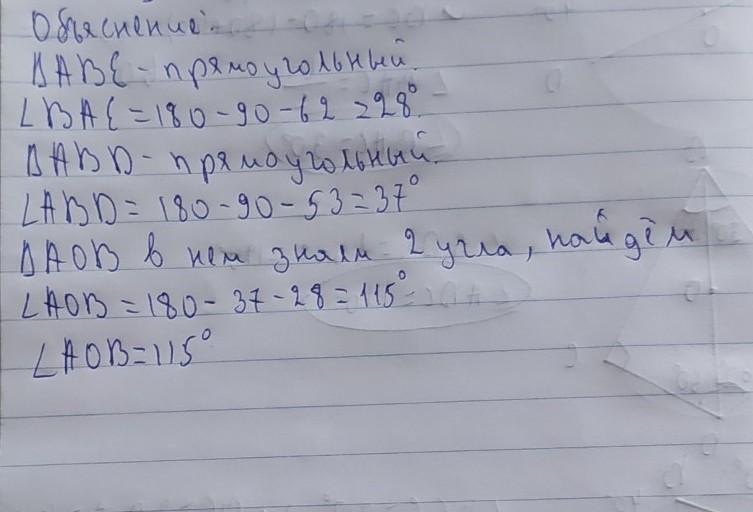 Объяснение:
ΔABE - прямоугольный.
∠BAE = 180 - 90 - 62 = 28°.
ΔABD - прямоугольный.
∠ABD = 180 - 90 - 53 = 37°
ΔAOB в нем знаем 2 угла, найдём
∠AOB = 180 - 37 - 28 = 115°
∠AOB = 115°